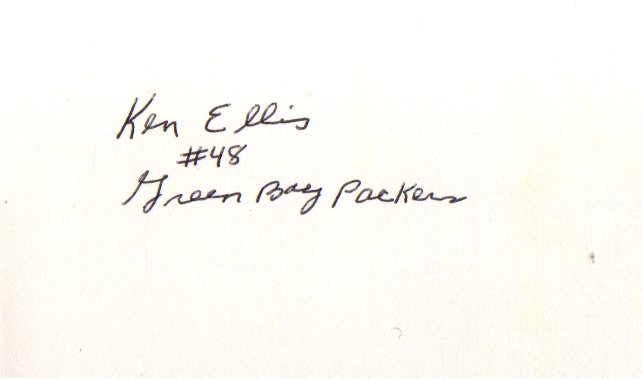 Ken Ellis
#48
Green Bay Packers